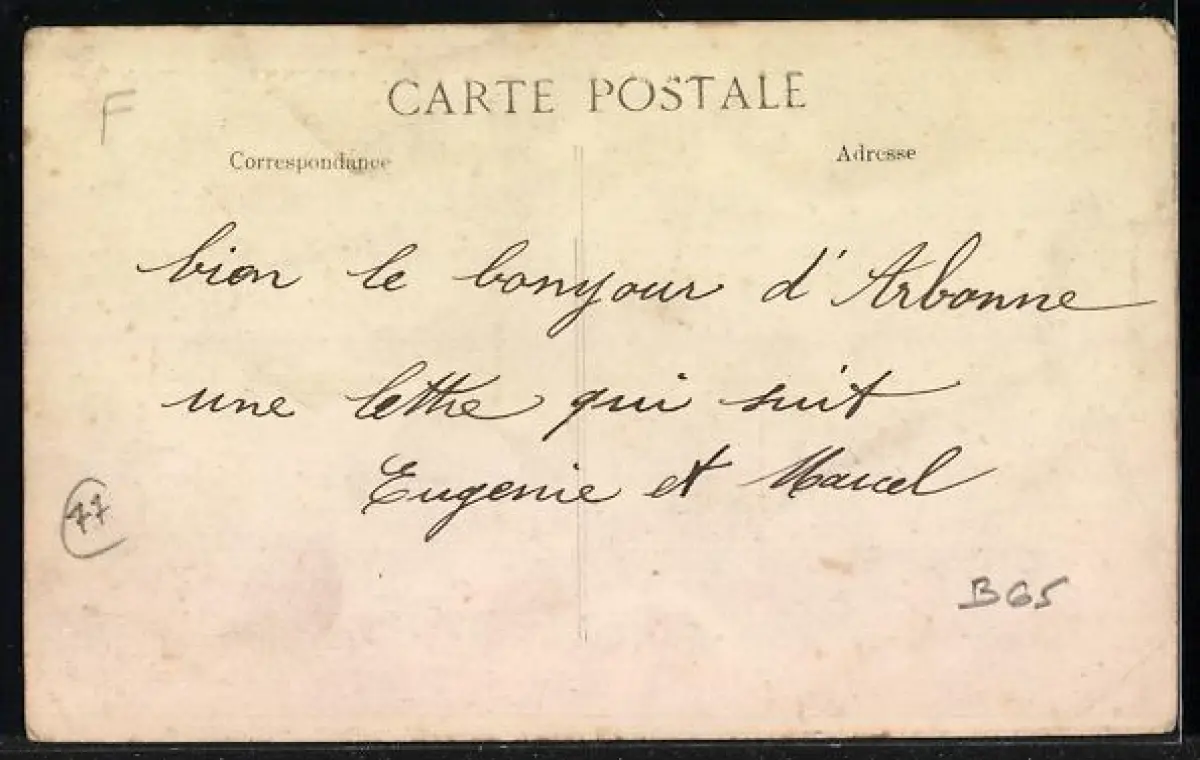 F
CARTE POSTALE
Correspondance
Adresse
bien le bonjour d'Arbonne
une lettre qui suit
Eugenie et Marcel
77
B65